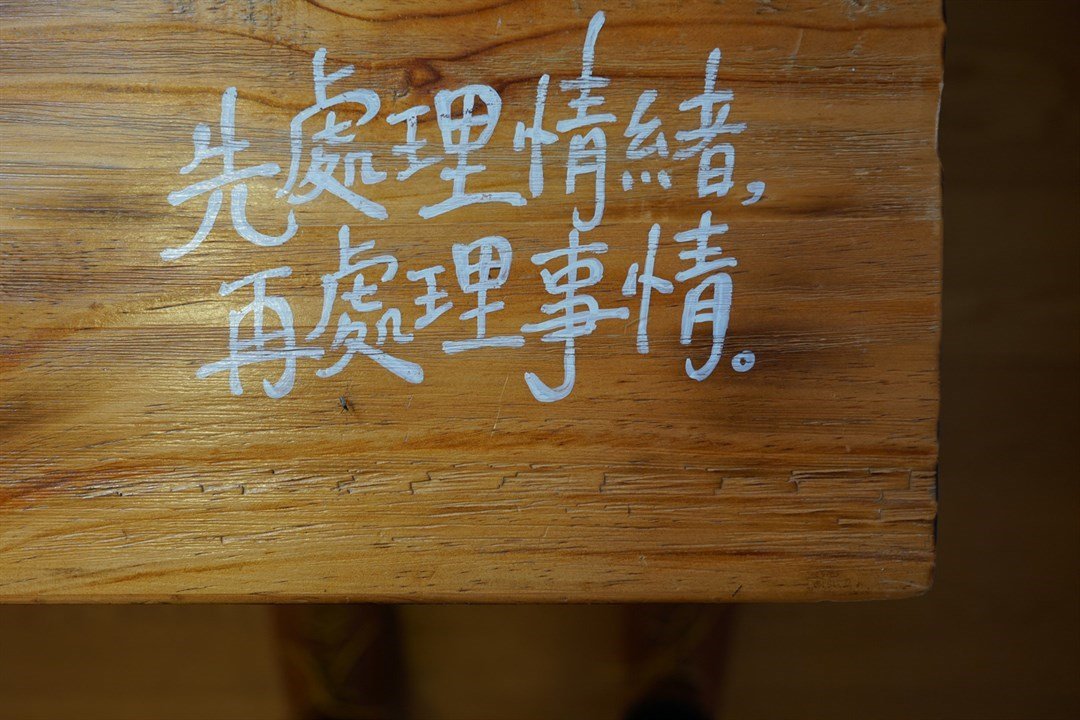 先處理情緒,
再處理事情。